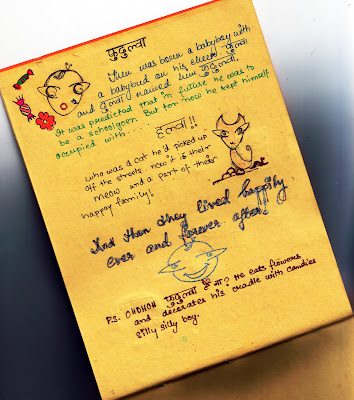 फुदुल्वा
There was been a babyboy with
a babybud on his cheek फुदुल्वा
and दुल्वा named him फुदुल्वा.
It was predicted that in future he was to
be a schoolgoer. But for now he kept himself
occupied with......
हल्वा!!
who was a cat he'd picked up
off the streets now't is their
meow and a part of their
happy family!
And then they lived happily
ever and forever after!!
P.S. OHOHOH फुदुल्वा है ना? He eats flowers
and decorates his cradle with candies
silly silly boy.